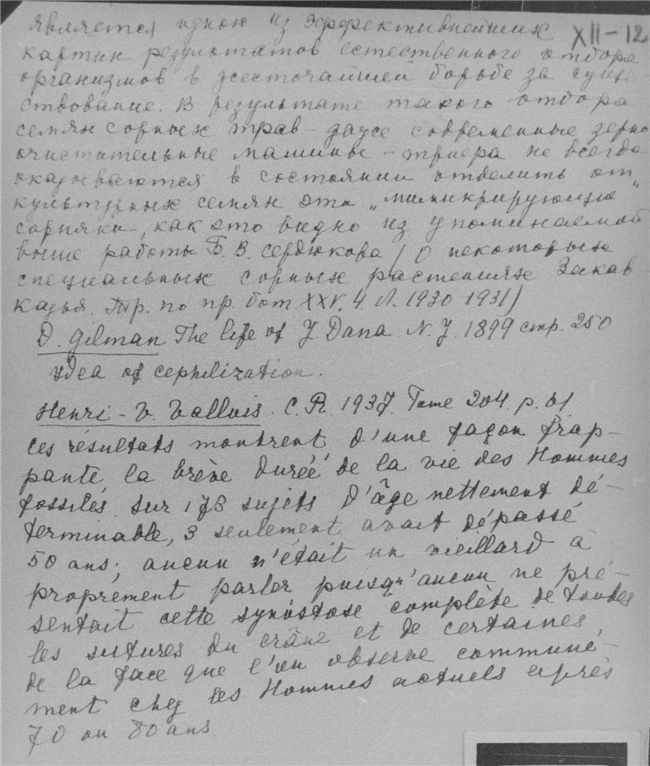 является одной из эффективнейших XII-12
картин результатов естественного отбора
организмов в жесточайшей борьбе за суще-
ствование. В результате такого отбора
семян сорных трав - даже современные зерно
очистительные машины - триера не всегда
оказываются в состоянии отделить от
культурных семян эти "мимикрирующие"
сорняки, как это видно из упоминаемой
выше работы Б.В. Сердюкова / О некоторых
специальных сорных растениях Закав
казья. Тр. по пр. бот XXV, 4 Л. 1930 1931/
D. Gilman The life of J. Dana N.J. 1899 стр. 250
Idea of cephilization.
Henri-V. Vallois. C.R. 1937. Tome 204. p. 61
ces résultats montrent d'une façon frap-
pante la brève durée de la vie des Hommes
fossiles. Sur 178 sujets d'âge nettement dé-
terminable, 3 seulement avait dépassé
50 ans; aucun n'était un vieillard à
proprement parler puisqu'aucun ne pré-
sentait cette synostose complète de toutes
les sutures du crâne et de certaines
de la face que l'on observe communé-
ment chez les Hommes actuels après
70 ou 80 ans